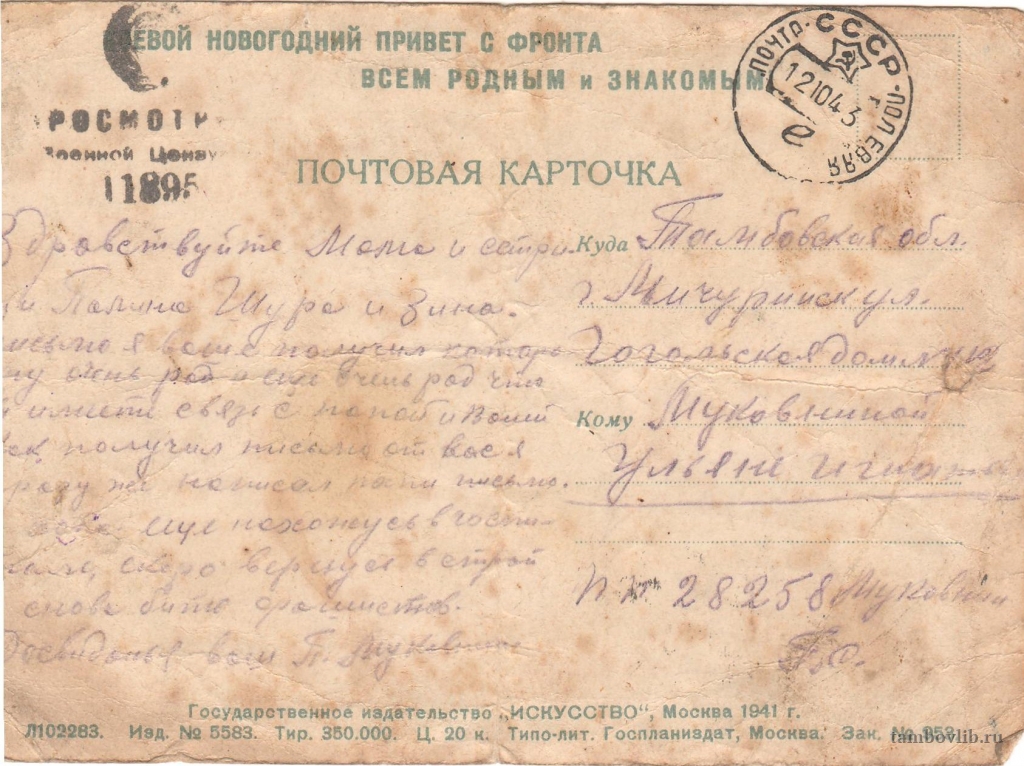 ЕВОЙ НОВОГОДНИЙ ПРИВЕТ С ФРОНТА
ВСЕМ РОДНЫМ и ЗНАКОМЫМ
ПОЧТА • СССР • ПОЛЕВАЯ
12 10 43
РОСМОТР
Военной Ценз
11895
ПОЧТОВАЯ КАРТОЧКА
Здравствуйте Мама и сстри
и Галина Шура и Зина.
письмо я ваше получил которо
му очень рад и еще очень рад что
имеети связь с папой и
как получил письмо от вас я
сразу же написал папи письмо.
еще нахожусь в госпи-
тале, скоро вернусь в строй
снова бить фашистов.
Досвиданья ваш П. Муковнин
Куда Тамбовская обл.
г. Мичуринск ул.
Гогольская дом
Кому Муковниной
Ульяне Игнать
28258 Муковнин
Государственное издательство „ИСКУССТВО", Москва 1941 г.
Л102283. Изд. № 5583. Тир. 350.000. Ц. 20 к. Типо-лит. Госпланиздат, Москва. Зак. № 953
tambovlib.ru